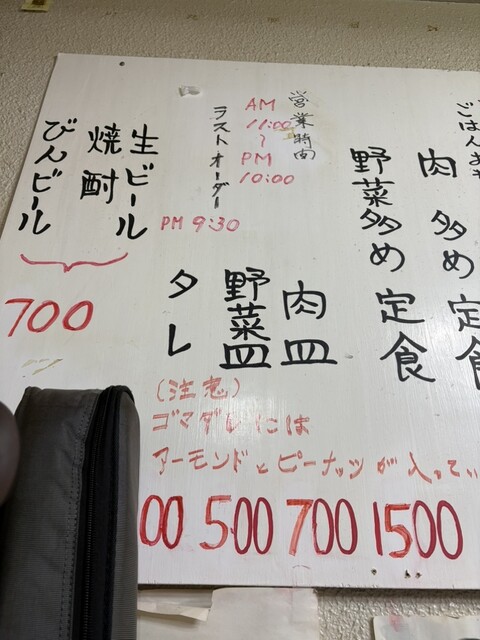 ごはん
肉 多め 定食
野菜多め 定食
1500
営業時間
AM
11:00
〜
PM
10:00
ラストオーダー
PM 9:30
肉皿
700
野菜皿
500
タレ
00
(注意)
ゴマダレには
アーモンドとピーナッツが入ってい
生ビール
焼酎
びんビール
700